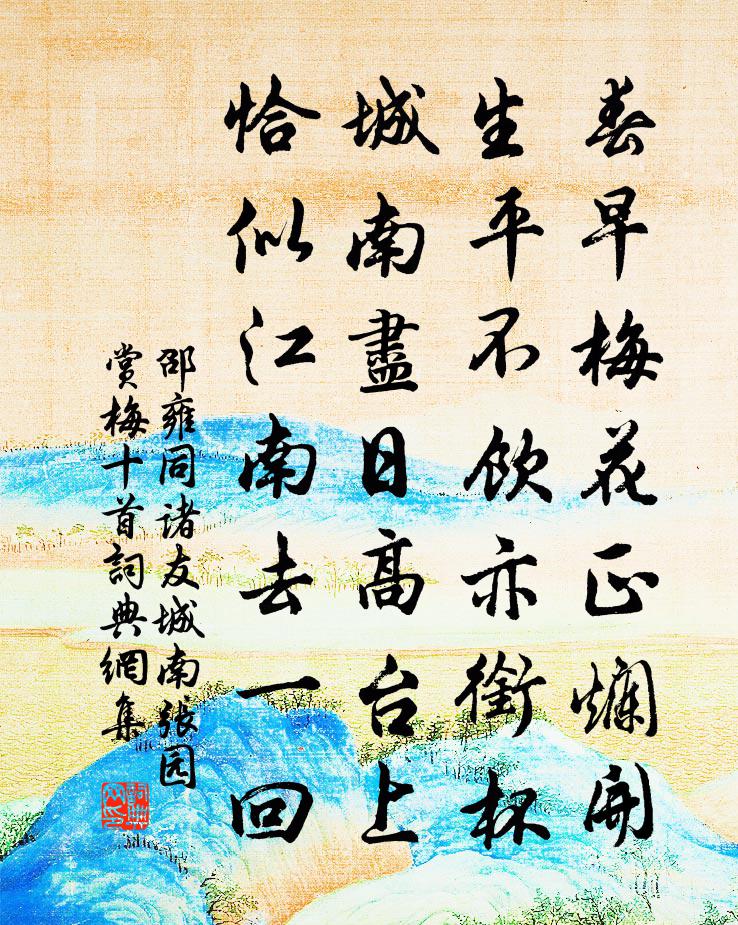 春早梅花正爛開
生平不飲亦銜杯
城南盡日高台上
恰似江南去一回
邵雍同诸友城南張园
賞梅十首詞典網集